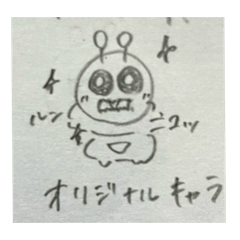 ルン
ニコッ
オリジナルキャラ